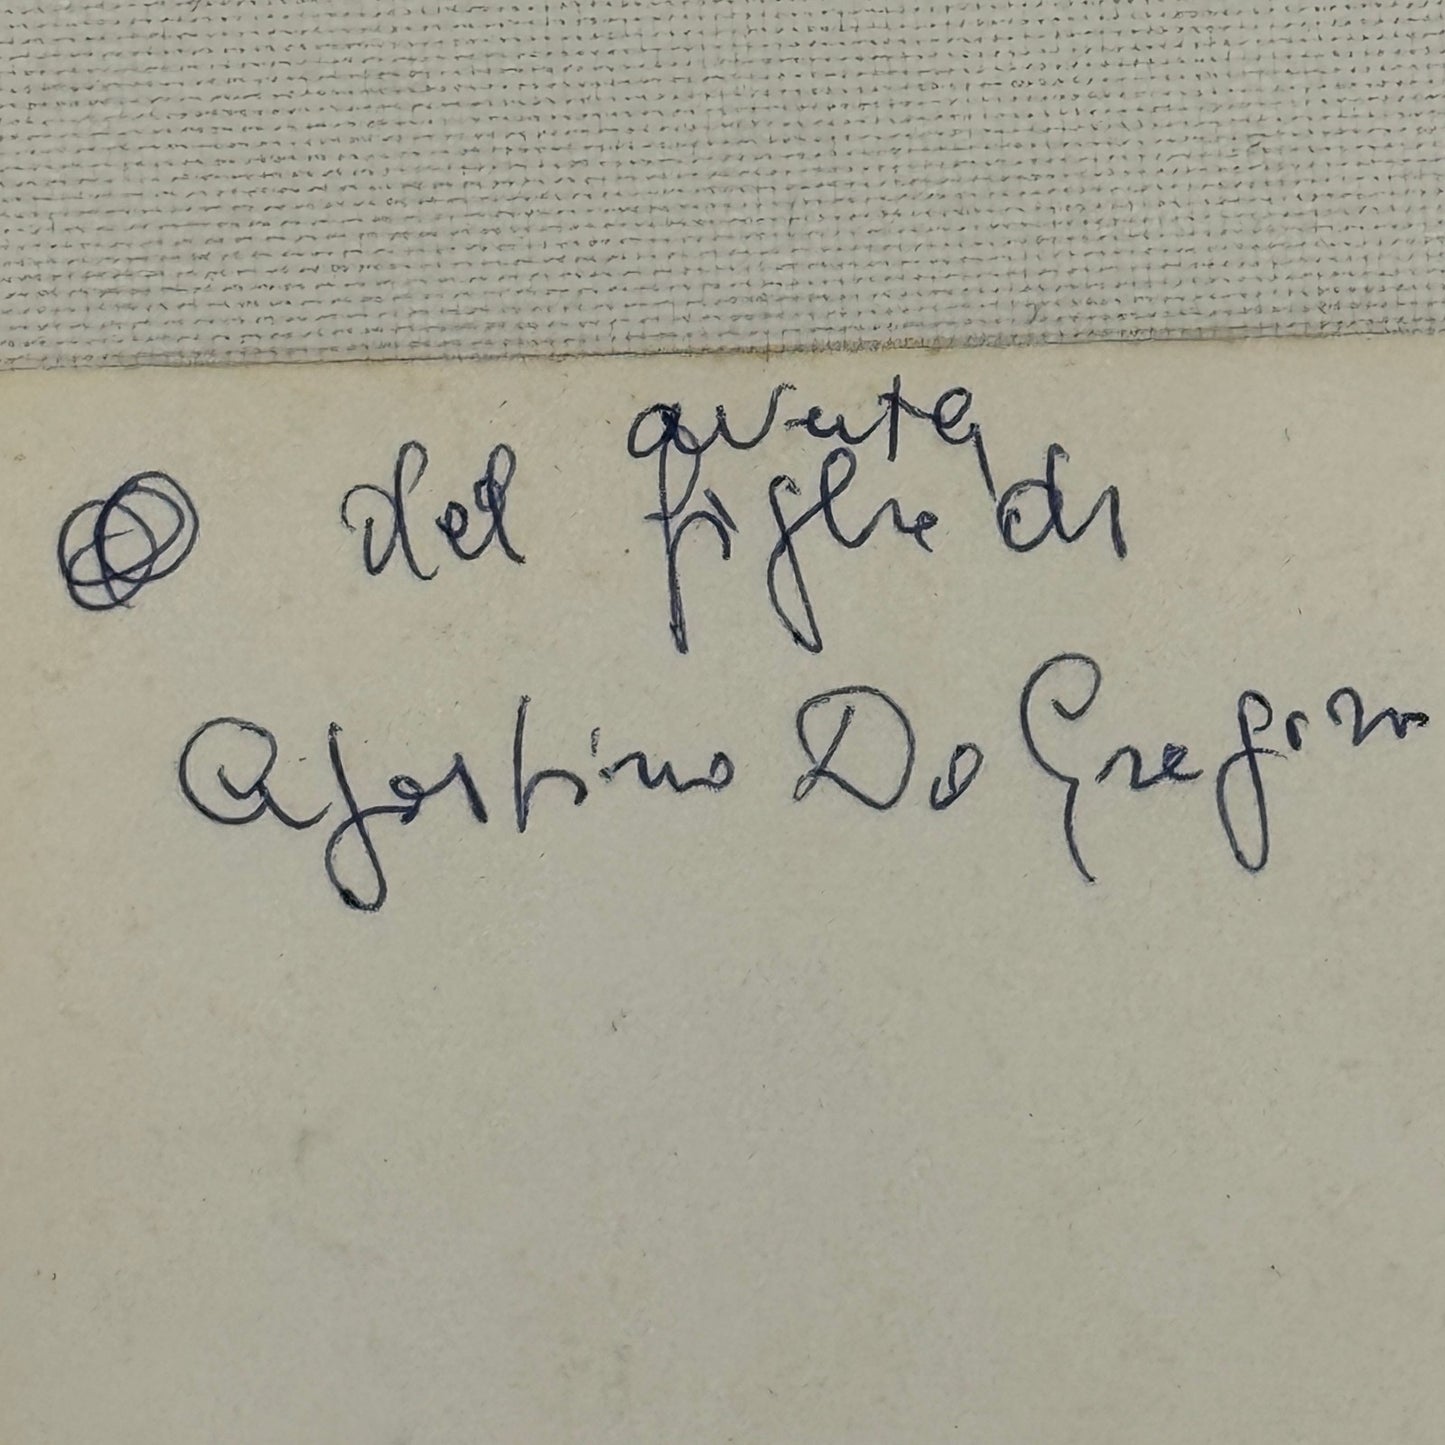 avuta
del figlio di
Agostino De Gregorio